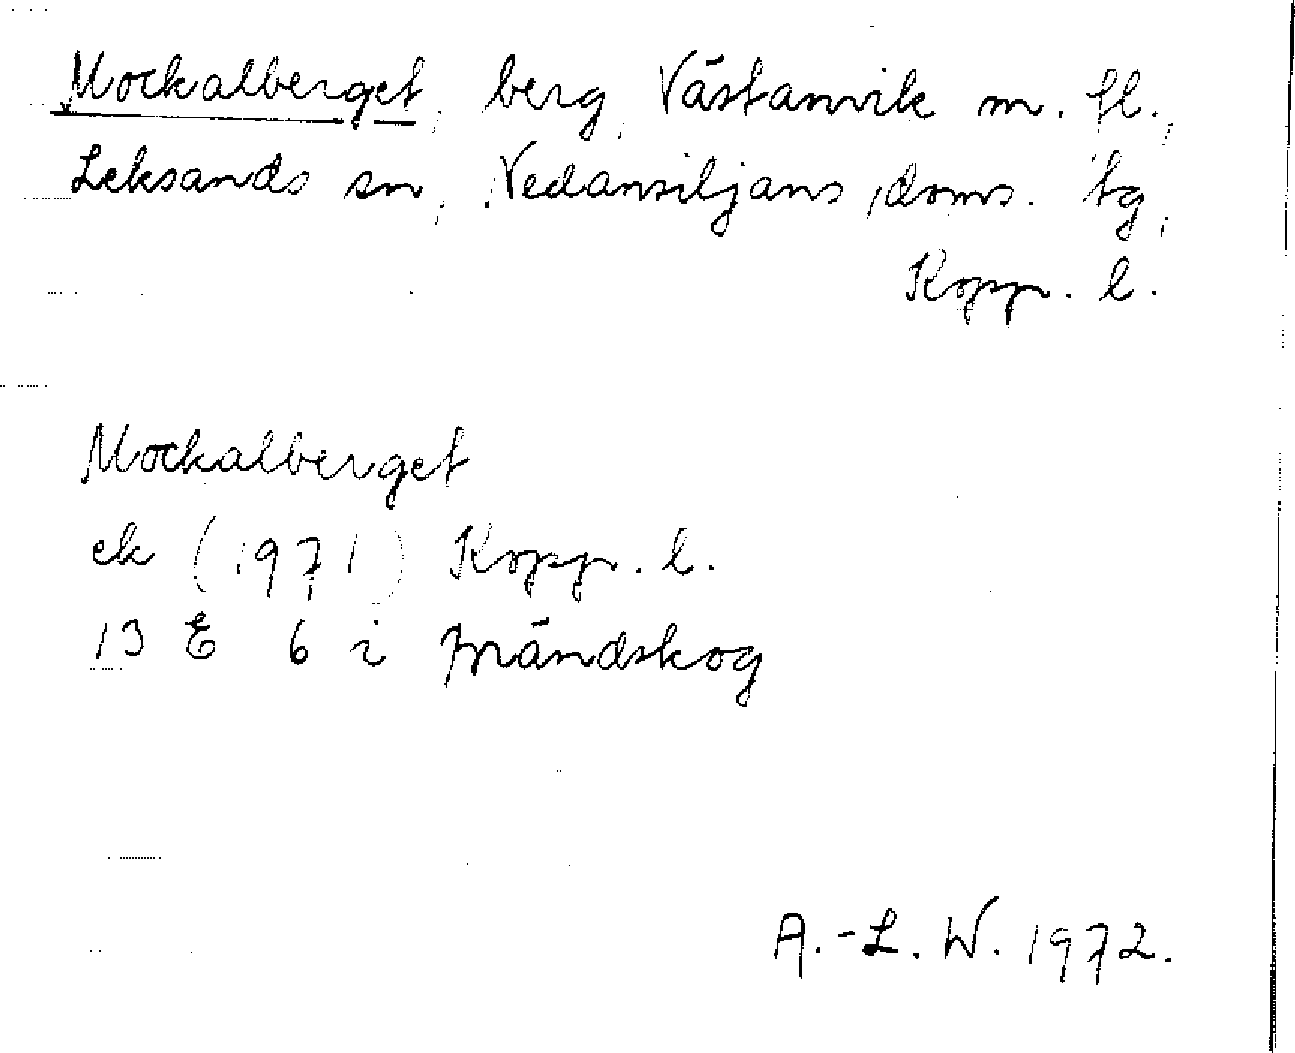 Mockalberget, berg, Västanvik m. fl.,
Leksands sn, Nedansiljans doms. tg,
Kopp. l.
Mockalberget
ek (1971) Kopp. l.
13 E 6 i Brändskog
A.-L. W. 1972.